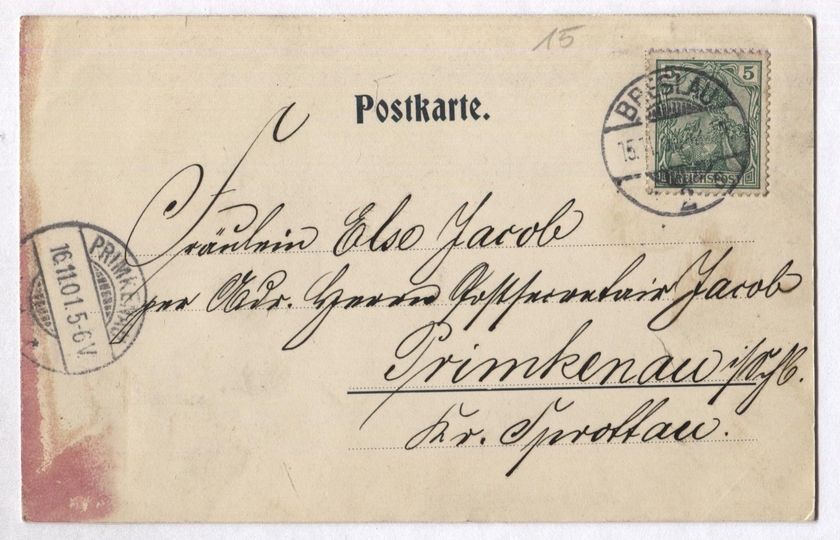 15
Postkarte.
5
BRESLAU
15.11
2
REICHSPOST
Fräulein Else Jacob
per Adr. Herrn Postsecretair Jacob
Primkenau i/Schl.
Kr. Sprottau.
PRIMKENAU
16.11.01.5-6V.